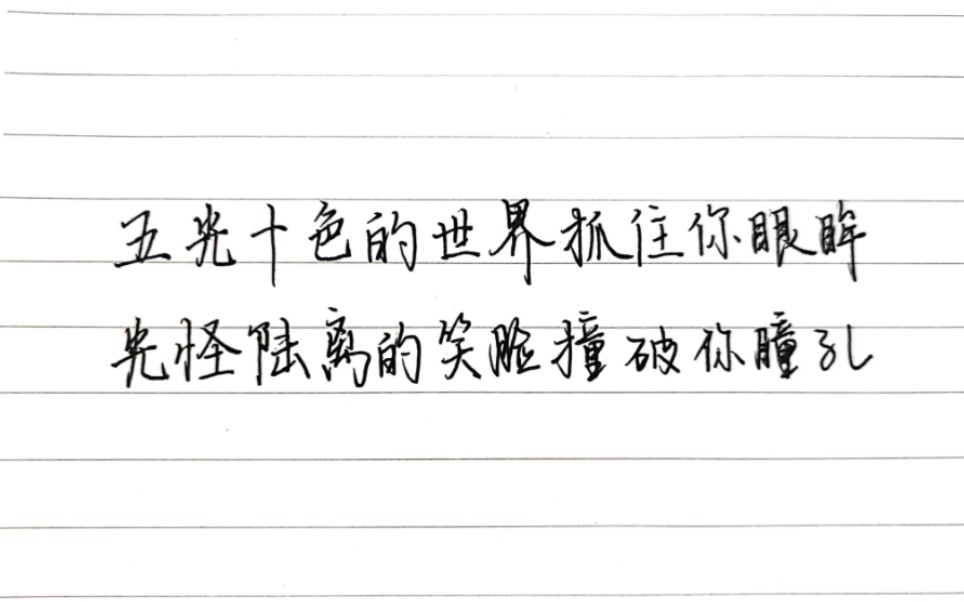 五光十色的世界抓住你眼眸
光怪陆离的笑脸撞破你瞳孔